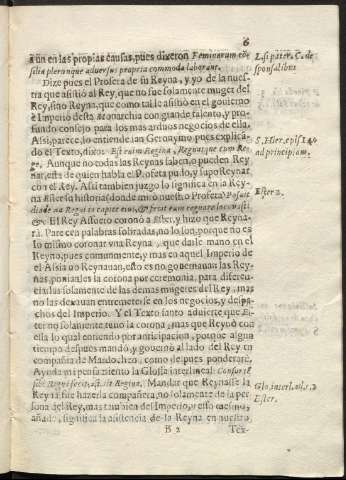 6
aun en las propias causas, pues dixeron Feminarum con-
silia plerunque adversus propria commoda laborant.
Dize pues el Profeta de su Reyna, y yo de la nues-
tra que assistió al Rey, que no fue solamente muger del
Rey, sino Reyna, que como tal le assistió en el govierno
è Imperio desta Monarchia con grande talento, y pro-
fundo consejo para los mas arduos negocios de ella.
Assi, parece, lo entiende san Geronymo, pues explica-
do el Texto, dize: Est enim Regina, Regnatque cum Re-
ge. Aunque no todas las Reynas saben, o pueden Rey
nar, esta de quien habla el Profeta pudo, y supo Reynar
con el Rey. Assi tambien juzgo lo significa en la Rey-
na Ester su historia (donde miró nuestro Profeta) Posuit
diadema Regni in capite eius, & fecit eam regnare loco Vasti,
&c. El Rey Assuero coronó a Ester, y hizo que Reyna-
rà. Parecen palabras sobradas, no lo son, porque no es
lo mismo coronar una Reyna, que darle mano en el
Reyno, pues comunmente, y mas en aquel Imperio de
el Assia no Reynauan, esto es no gobernauan las Rey-
nas, ponianles la corona por ceremonia, para diferen-
ciarlas solamente de las demas mugeres del Rey, mas
no las dexauan entremeterse en los negocios, y despa-
chos del Imperio. Y el Texto santo advierte que Es-
ter no solamente tuvo la corona, mas que Reynó con
ella lo qual entiendo por anticipacion, porque algun
tiempo despues mandó, y governò al lado del Rey en
compañia de Mardocheo, como despues ponderaré.
Ayuda mi pensamiento la Glossa interlineal: Consortē
sibi Regni fecit,
Mandar que Reynasse la
Reyna fue hazerla compañera, no solamente de la per
sona del Rey, mas tambien del Imperio, y esso mismo,
añado, significa la assistencia de la Reyna en nuestro
B 2
Tex-
L. si pater, C. de
sponsalibus
S. Hier. epist. 140.
ad principiam.
Ester 2.
Glo. interl. ad c. 2
Ester.